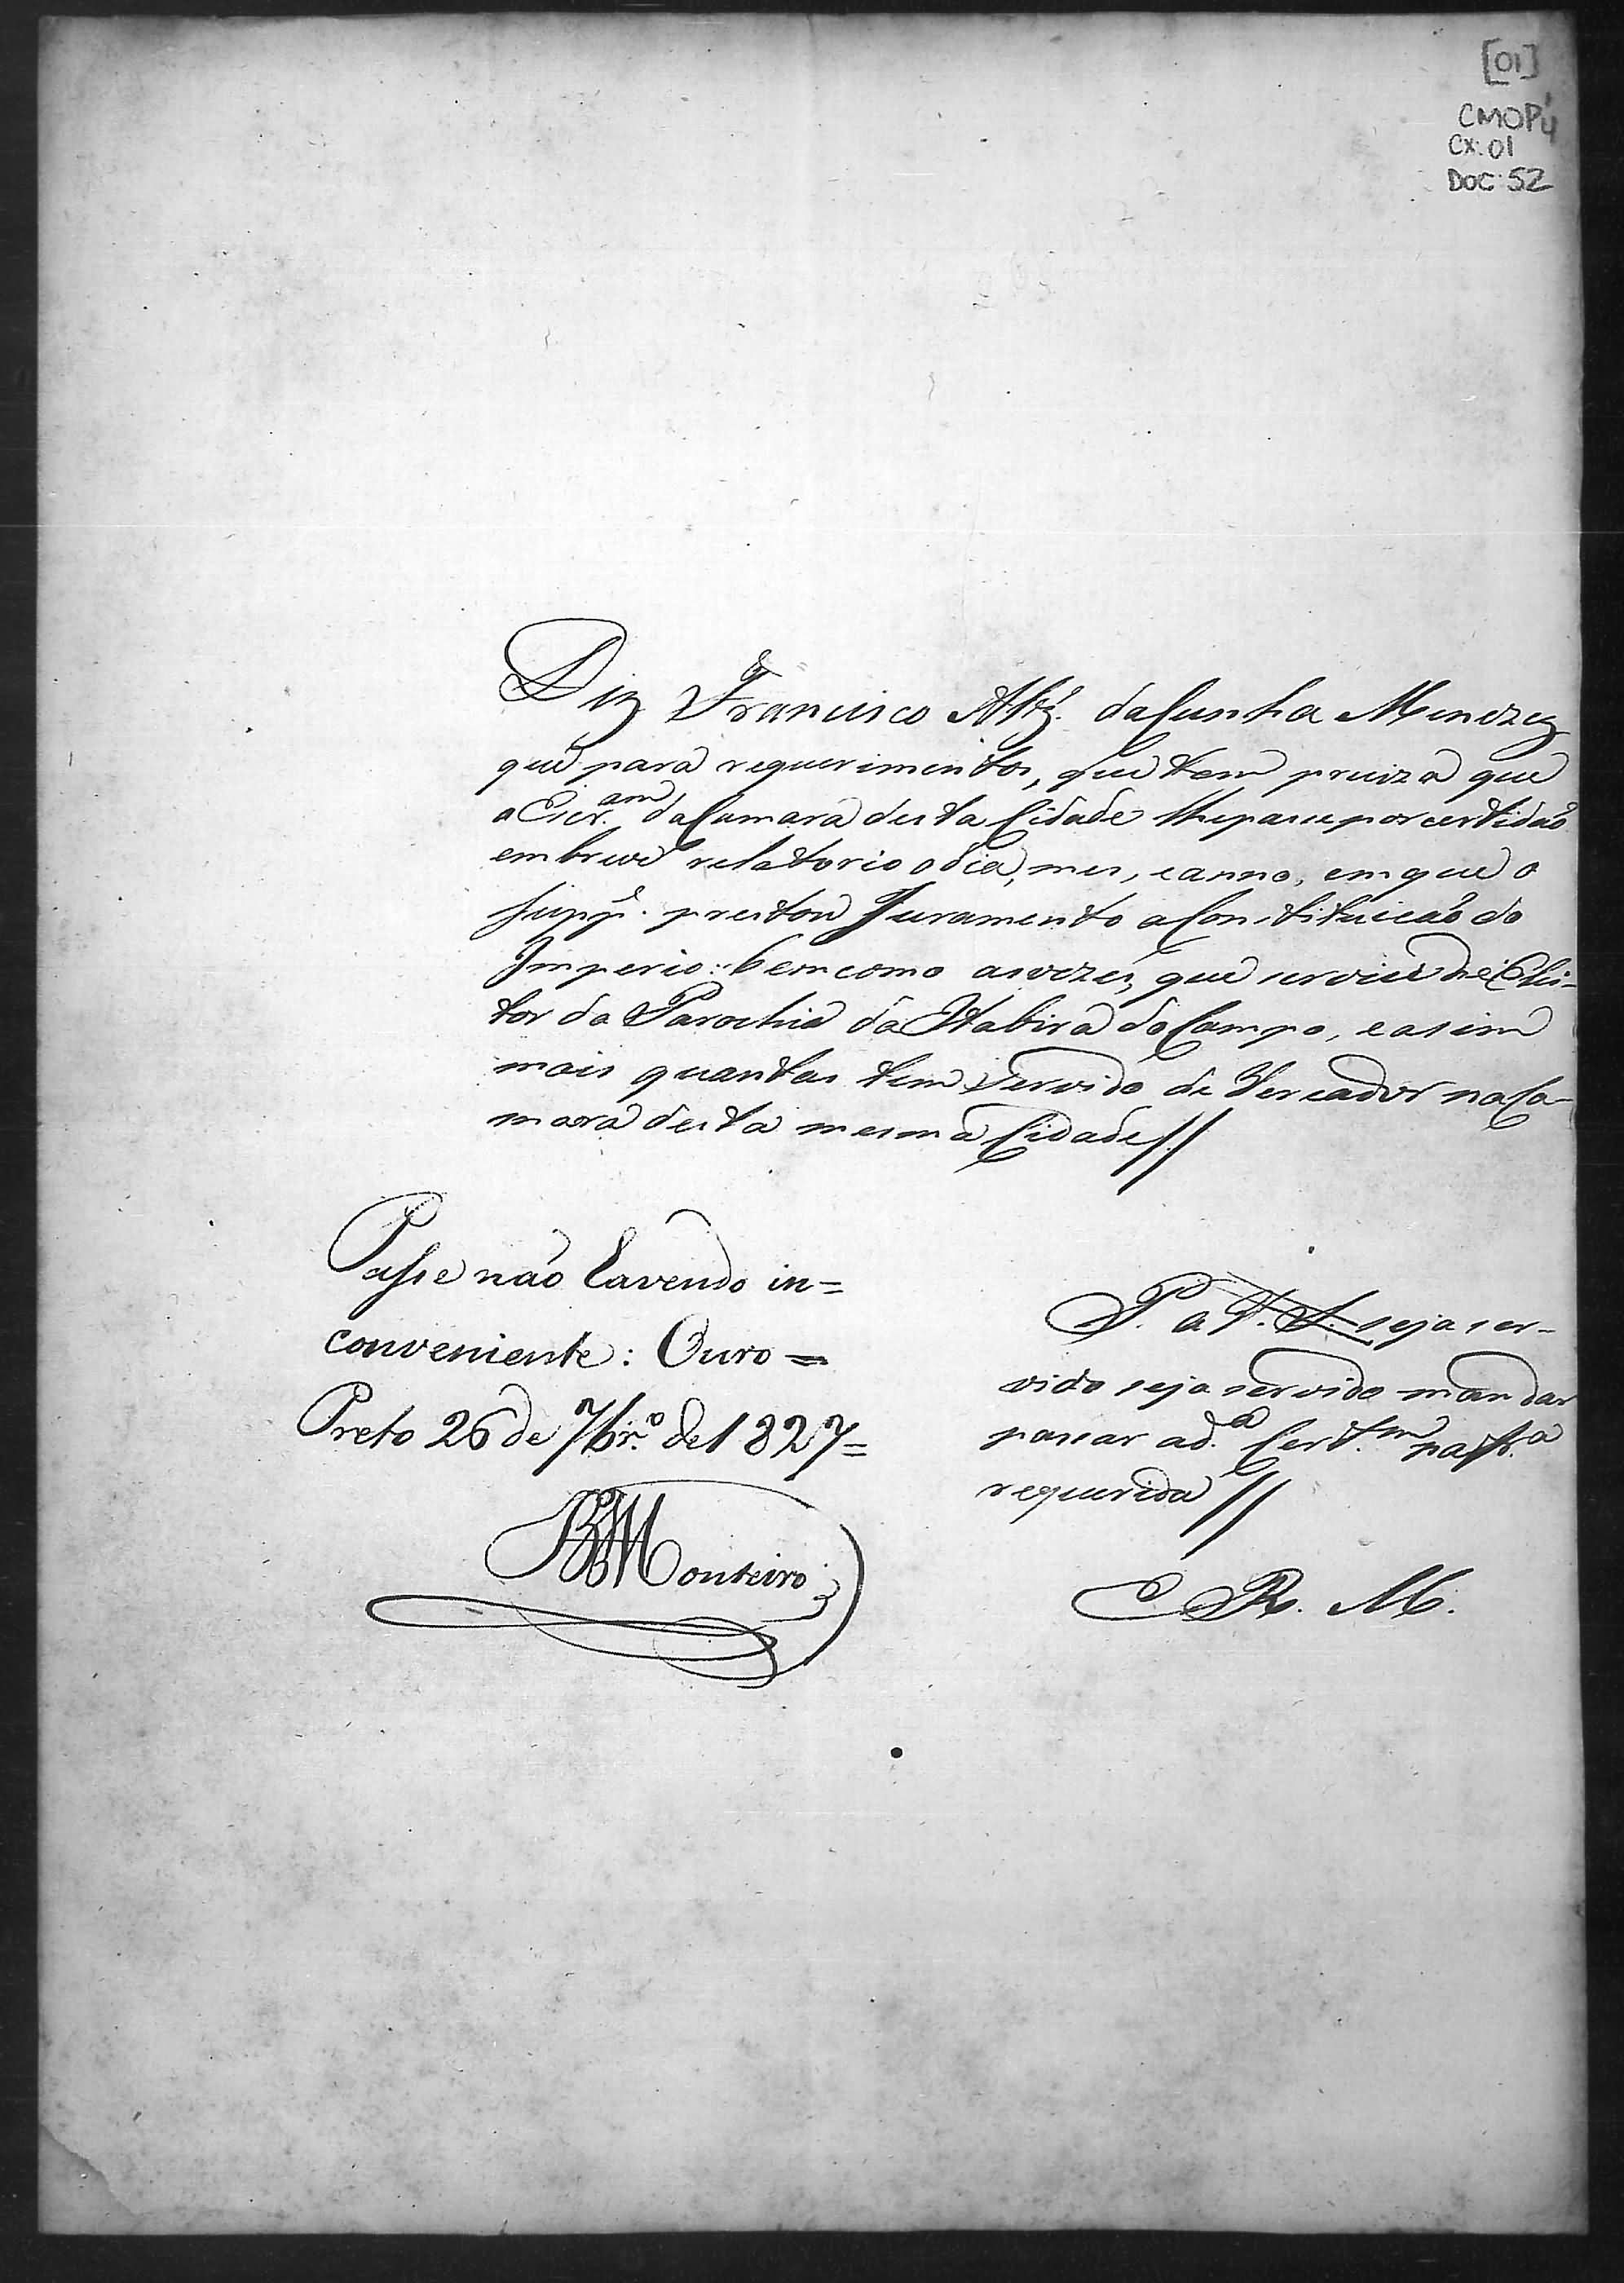 [01]
CMOP 4
CX: 01
DOC: 52
Diz Francisco Alvz. da Cunha Menezes
que para requerimentos, que tem preciza que
o Escr.am da Camara desta Cidade lhe passe por certidaõ
em breve relatorio o dia, mes, e anno, em que o
Supp.e prestou Juramento a Constituicaõ do
Imperio: bem como as vezes, que servio de Elei-
tor da Parochia da Itabira do Campo, e asim
mais quantas tem servido de Vereador na Ca-
mara desta mesma Cidade //
Passe naõ havendo in=
conveniente: Ouro =
Preto 26 de 7br.o de 1827=
Monteiro
P. a V. S. seja ser-
vido seja servido mandar
passar a d.a Cert.m na fr.a
requerida //
E R. M.